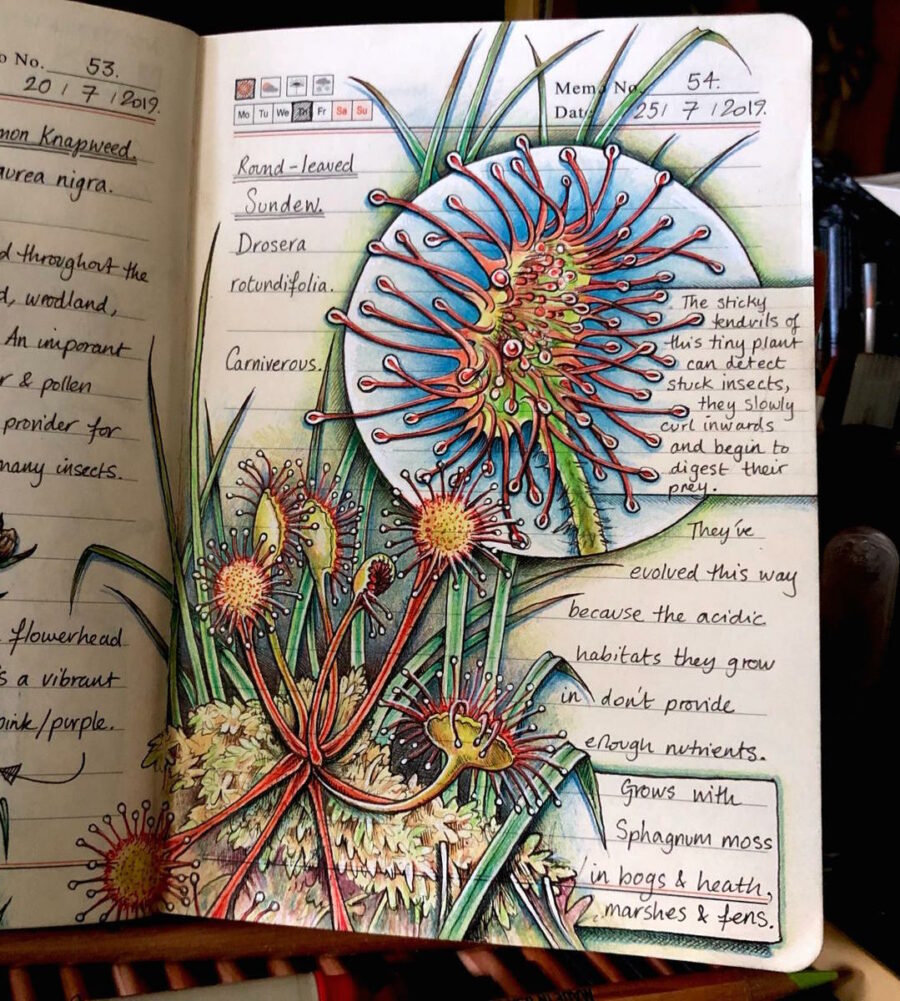 No. 53.
20 / 7 / 2019.
Knapweed.
nigra.
throughout the
woodland,
An imporant
& pollen
provider for
many insects.
flowerhead
a vibrant
pink/purple.
Memo No. 54.
Mo Tu We TH Fr Sa Su
Date 25 / 7 / 2019.
Round-leaved
Sundew.
Drosera
rotundifolia.
Carniverous.
The sticky
tendrils of
this tiny plant
can detect
stuck insects,
they slowly
curl inwards
and begin to
digest their
prey.
They've
evolved this way
because the acidic
habitats they grow
in don't provide
enough nutrients.
Grows with
Sphagnum moss
in bogs & heath,
marshes & fens.